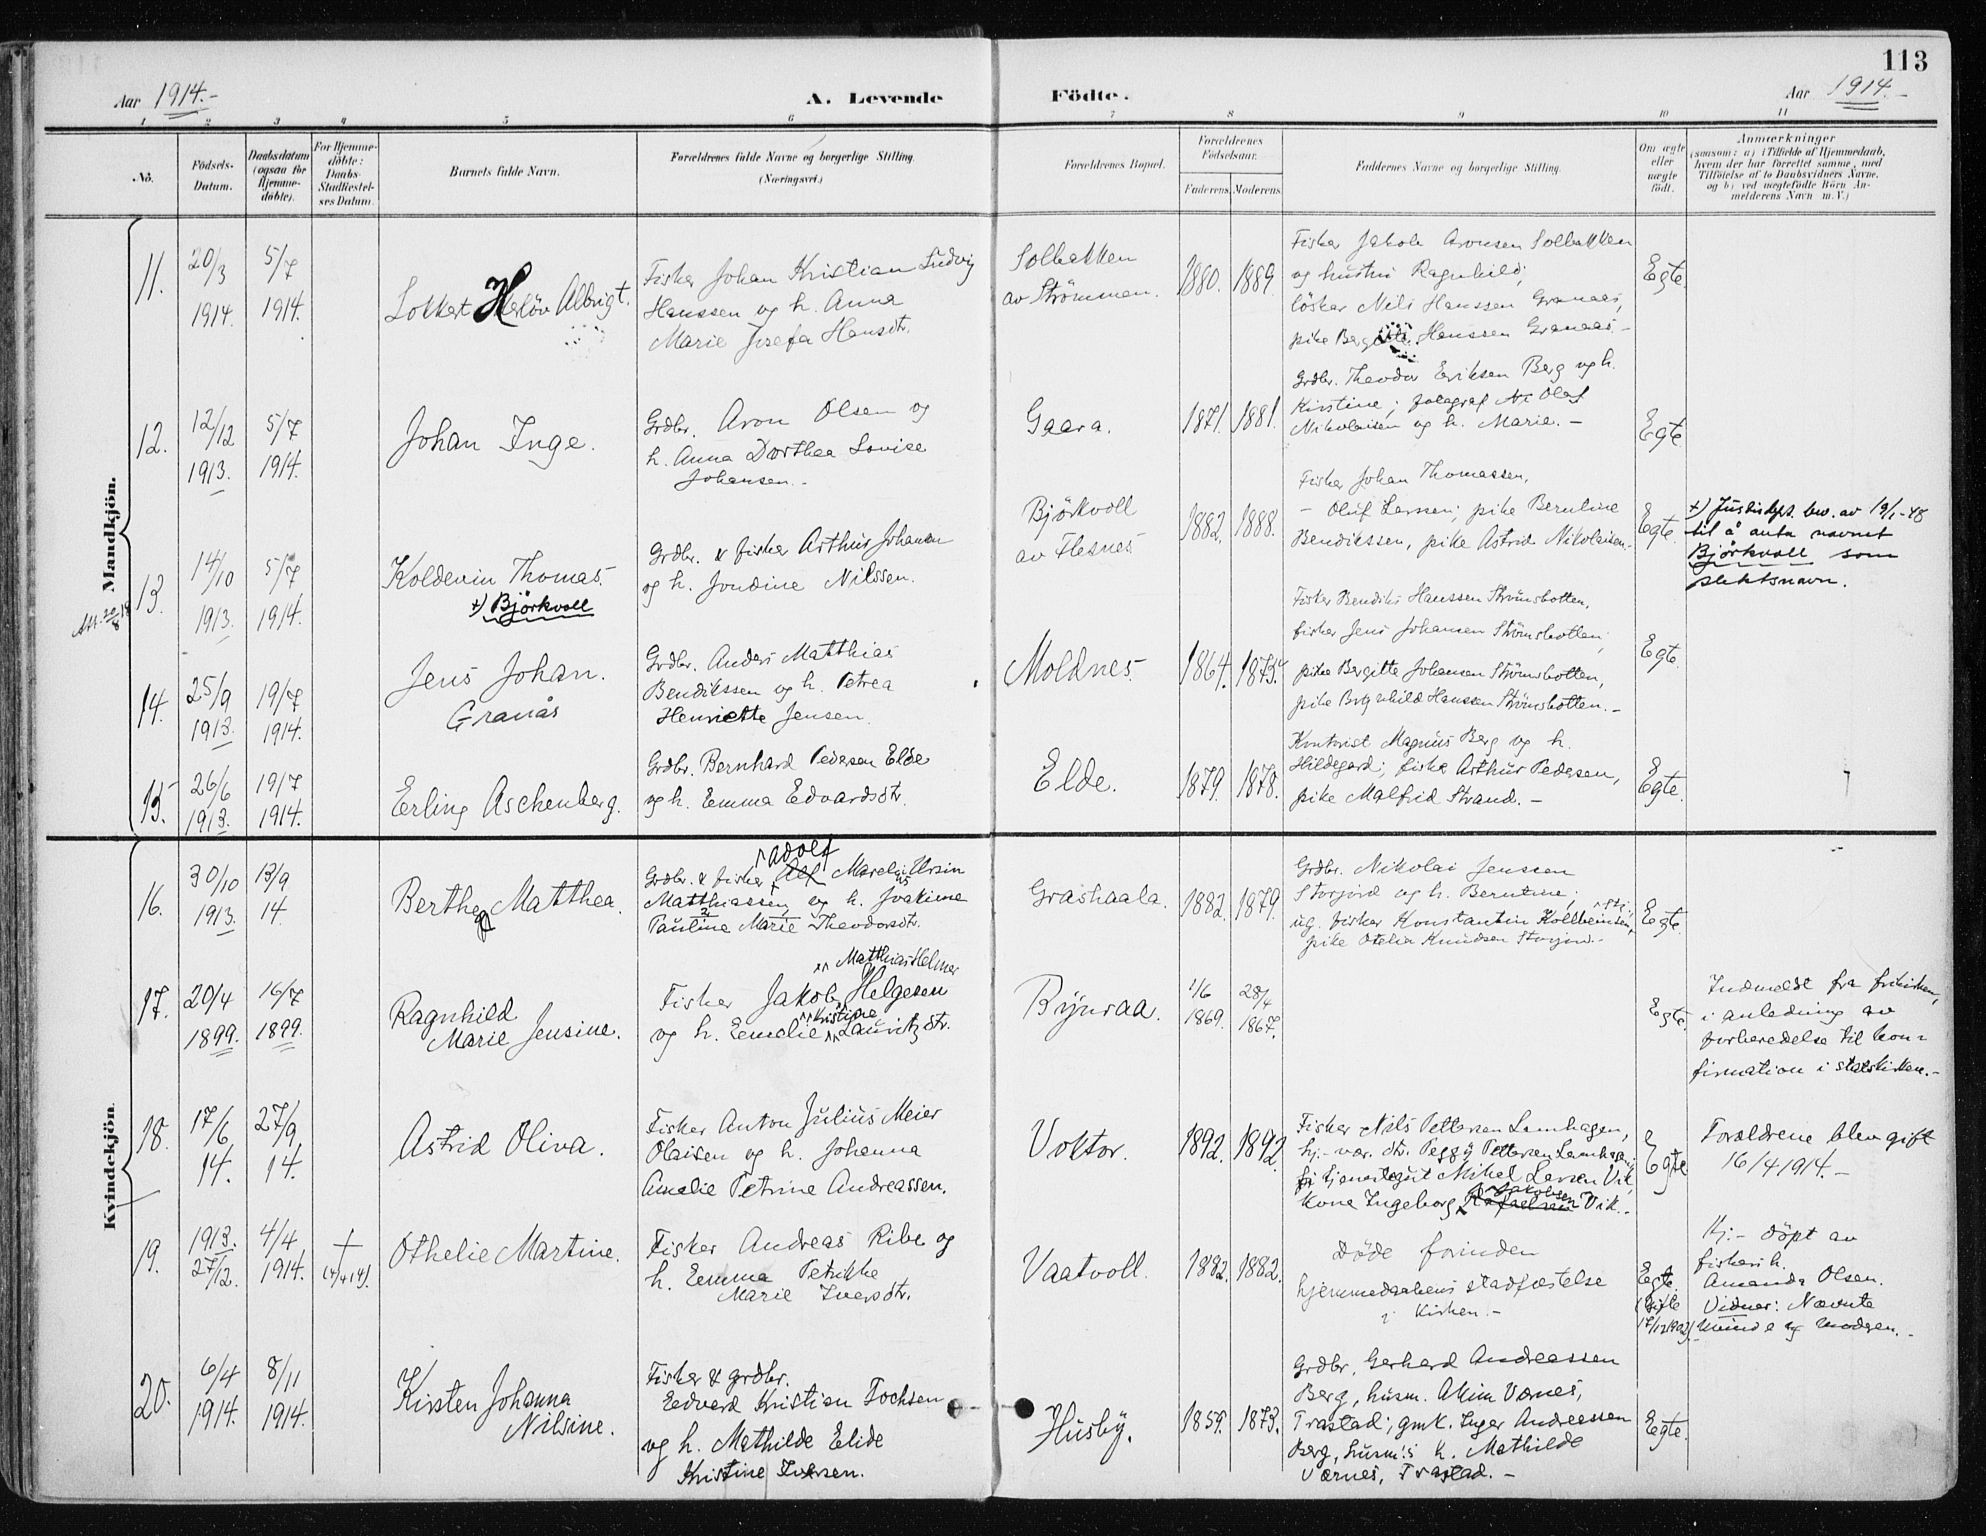 113
Aar 1914.-
A. Levende Födte.
Aar 1914.-
1 2 3 4 5 6 7 8 9 10 11
No.
Födsels-
Datum.
Daabsdatum
(ogsaa for
Hjemme-
døbte).
For Hjemme-
døbte:
Daabs-
Stadfæstel-
ses Datum.
Barnets fulde Navn.
Forældrenes fulde Navne og borgerlige Stilling.
(Næringsvei.)
Forældrenes Bopæl.
Forældrenes
Födselsaar.
Faderens. Moderens.
Faddernes Navne og borgerlige Stilling.
Om ægte
eller
uægte
født.
Anmærkninger
(saasom: a) i Tilfælde af Hjemmedaab,
hvem der har forrettet samme, med
Tilföielse af to Daabsvidners Navne,
og b) ved uægtefödte Börn An-
melderens Navn m. V.)
Mandkjön.
11.
20/3
1914.
5/7
1914.
Lokkert Herlöv Albrigt.
Fisker Johan Kristian Ludvig
Hanssen og h. Anna
Marie Josefa Hansdtr.
Solbakken
av Strömmen.
1880. 1889.
Fisker Jakob Aronsen Solbakken
og hustru Ragnhild;
löskar Nils Hanssen Granaas,
pike Bergitte Hanssen Granaas.-
Egte.
12.
12/12
1913.
5/7
1914.
Johan Inge.
Grdbr. Aron Olsen og
h. Anna Dorthea Lovise
Johansen.-
Gaara.
1871. 1881.
Grdbr. Theodor Eriksen Berg og h.
Kirstine; fotograf Olaf
Nikolaisen og h. Marie.-
Egte
13.
14/10
1913.
5/7
1914.
Koldevin Thomas.
+) Björkvoll
Grdbr. & fisker Arthur Johansen
og h. Jondine Nilssen.
Björkvoll
av Flesnes
1882. 1888.
Fisker Johan Thomassen,
- Oluf Larssen; pike Bernline
Bendikssen, pike Astrid Nikolaisen.
Egte.
+) Justisdept. bev. av 19/1-48
til å anta navnet
Björkvoll som
slektsnavn.
14.
25/9
1913.
19/7
1914.
Jens Johan.
Granås
Grdbr. Anders Matthias
Bendikssen og h. Petrea
Henriette Jensen.
Moldnes.
1864. 1873.
Fisker Bendiks Hanssen Strömsbotten,
fisker Jens Johansen Strömsbotten,
pike Bergitte Johansen Strömsbotten,
pike Hanssen Strömsbotten.-
Egte.
15.
26/6
1913.
19/7
1914.
Erling Aschenberg.
Grdbr. Bernhard Pedersen Elde
og h. Emma Edvardsdtr.
Elde.
1879. 1878.
Kontorist Magnus Berg og h.
Hildegard; fisker Arthur Pedersen,
pike Malfrid Strand.-
Egte.
Kvindekjön.
16.
30/10
1913.
13/9
14.
Berthe Matthea.
Adolf
Grdbr. & fisker Alf Marelius Ursin
Matthiassen og h. Joakime
Pauline Marie Theodorsdtr.
Grashaala.
1882. 1879.
Grdbr. Nikolai Jenssen
Storjord og h. Berntine;
ug. fisker Konstantin Kolbeinsen,
pike Otelia Knudsen Storjord.-
Egte.
17.
20/4
1899.
16/7
1899.
Ragnhild
Marie Jensine.
Matthias Helmer
Fisker Jakob Helgesen
Kristine
og h. Emelie Lauritzdtr.
Rynraa.
1/6
1869.
28/4
1867.
Egte.
Indmeldt fra frikirken,
i anledning av
forberedelse til kon-
firmation i statskirken.-
18.
17/6
14.
27/9
14.
Astrid Oliva.
Fisker Anton Julius Meier
Olaisen og h. Johanna
Amalie Petrine Andreassen.
Voktor.
1892. 1892.
Fisker Nils Pettersen Lamhagen,
hj.-vær. dtr. Peggy Pettersen Lamhagen;
tjenestegut Mikal Larsen Vik,
Jakobsen
kone Ingeborg Vik.-
Egte
Forældrene blev gift
16/4 1914.-
19.
1913.
27/12.
4/4
1914.
†
(4/4 14).
Othelie Martine.
Fisker Andreas Ribe og
h. Emma Petrikke
Marie Iversdtr.
Vaatvoll.
1882. 1882.
Døde forinden
hjemmedaabens stadfæstelse
i kirken.-
Egte.
(Gifte
17/12 1902)
Hj.- döpt av
fiskerh.
Amanda Olsen.
Vidner: Nævnte
og moderen.-
20.
6/4
1914.
8/11
1914.
Kirsten Johanna
Nilsine.
Fisker & grdbr.
Edvard Kristian Tochsen
og h. Mathilde Elide
Kristine Iversen.
Husby.
1859. 1873.
Grdbr. Gerhard Andreassen
Berg, husm. Akim Værnes,
Trastad; gmk. Inger Andreassen
Berg, husm:s h. Mathilde
Værnes, Trastad.-
Egte.